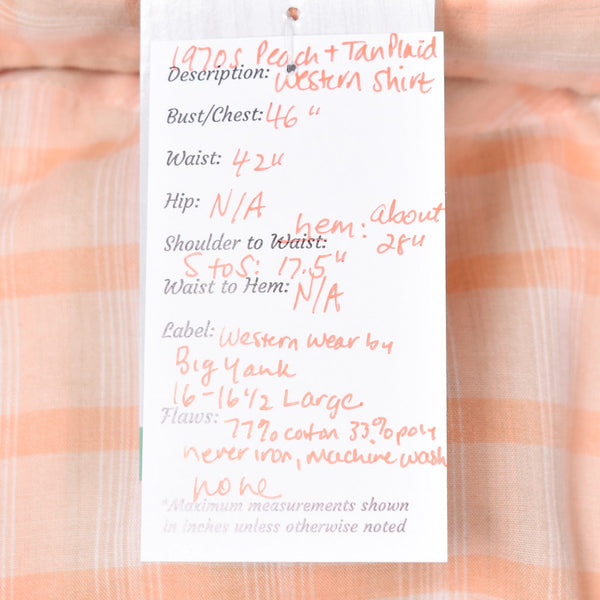 1970s Peach + Tan Plaid
Description: Western Shirt
Bust/Chest: 46"
Waist: 42"
Hip: N/A
Shoulder to Waist: hem: about 28"
S to S: 17.5"
Waist to Hem: N/A
Label: Western Wear by
Big Yank
16-16 1/2 Large
Flaws: 77% cotton 33% poly
never iron, machine wash
none
*Maximum measurements shown
in inches unless otherwise noted